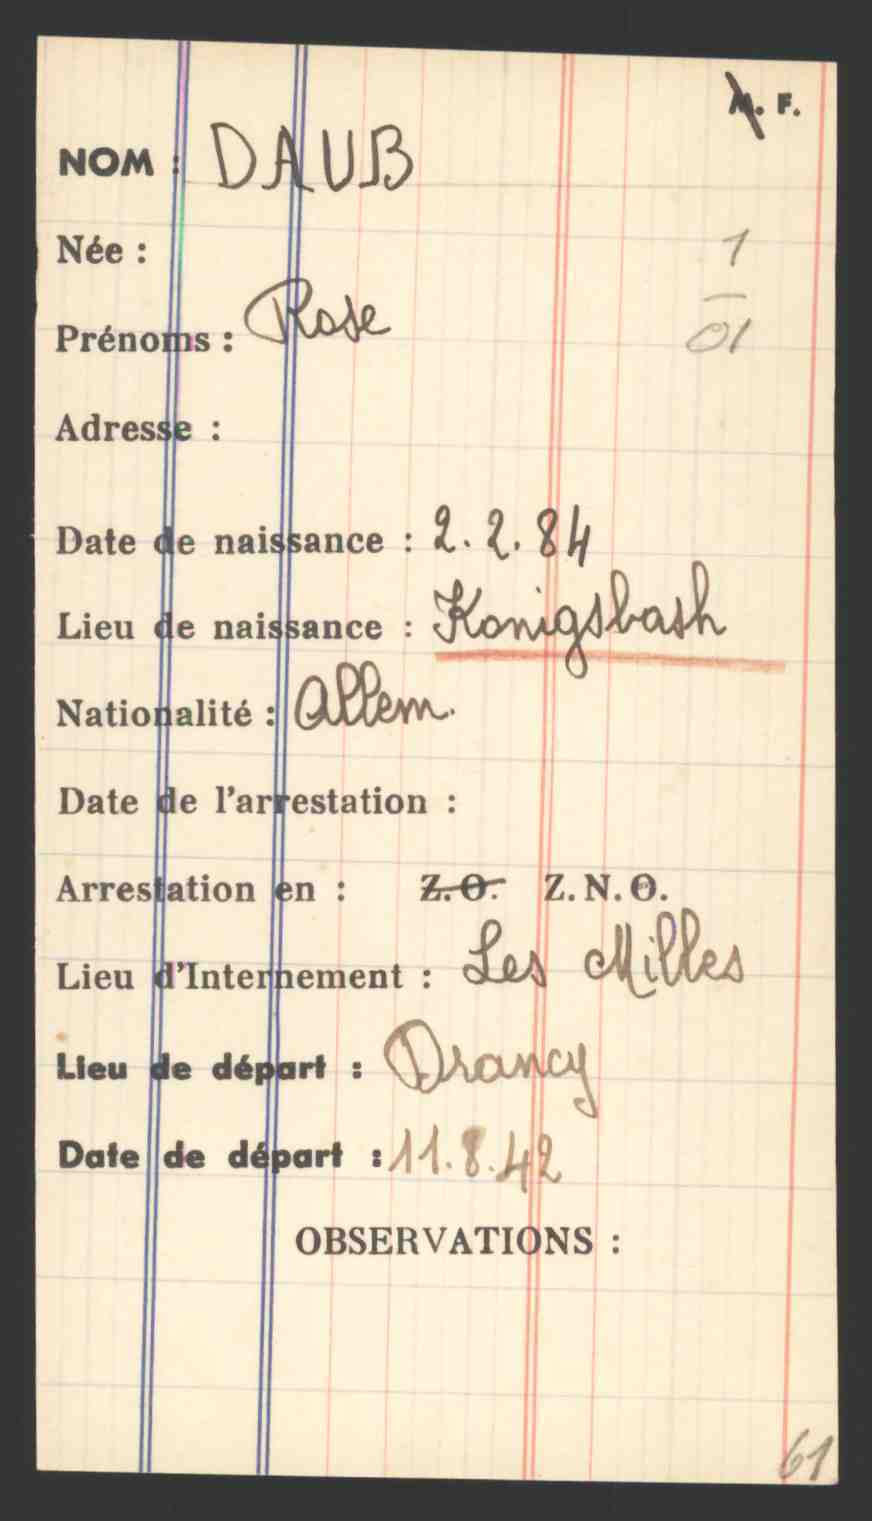 M. F.
NOM : DAUB
Née :
1
Prénoms : Rose
01
Adresse :
Date de naissance : 2.2.84
Lieu de naissance : Konigsbash
Nationalité : Allem.
Date de l'arrestation :
Arrestation en : Z.O. Z.N.O.
Lieu d'Internement : Les Milles
Lieu de départ : Drancy
Date de départ : 11.8.42
OBSERVATIONS :
61